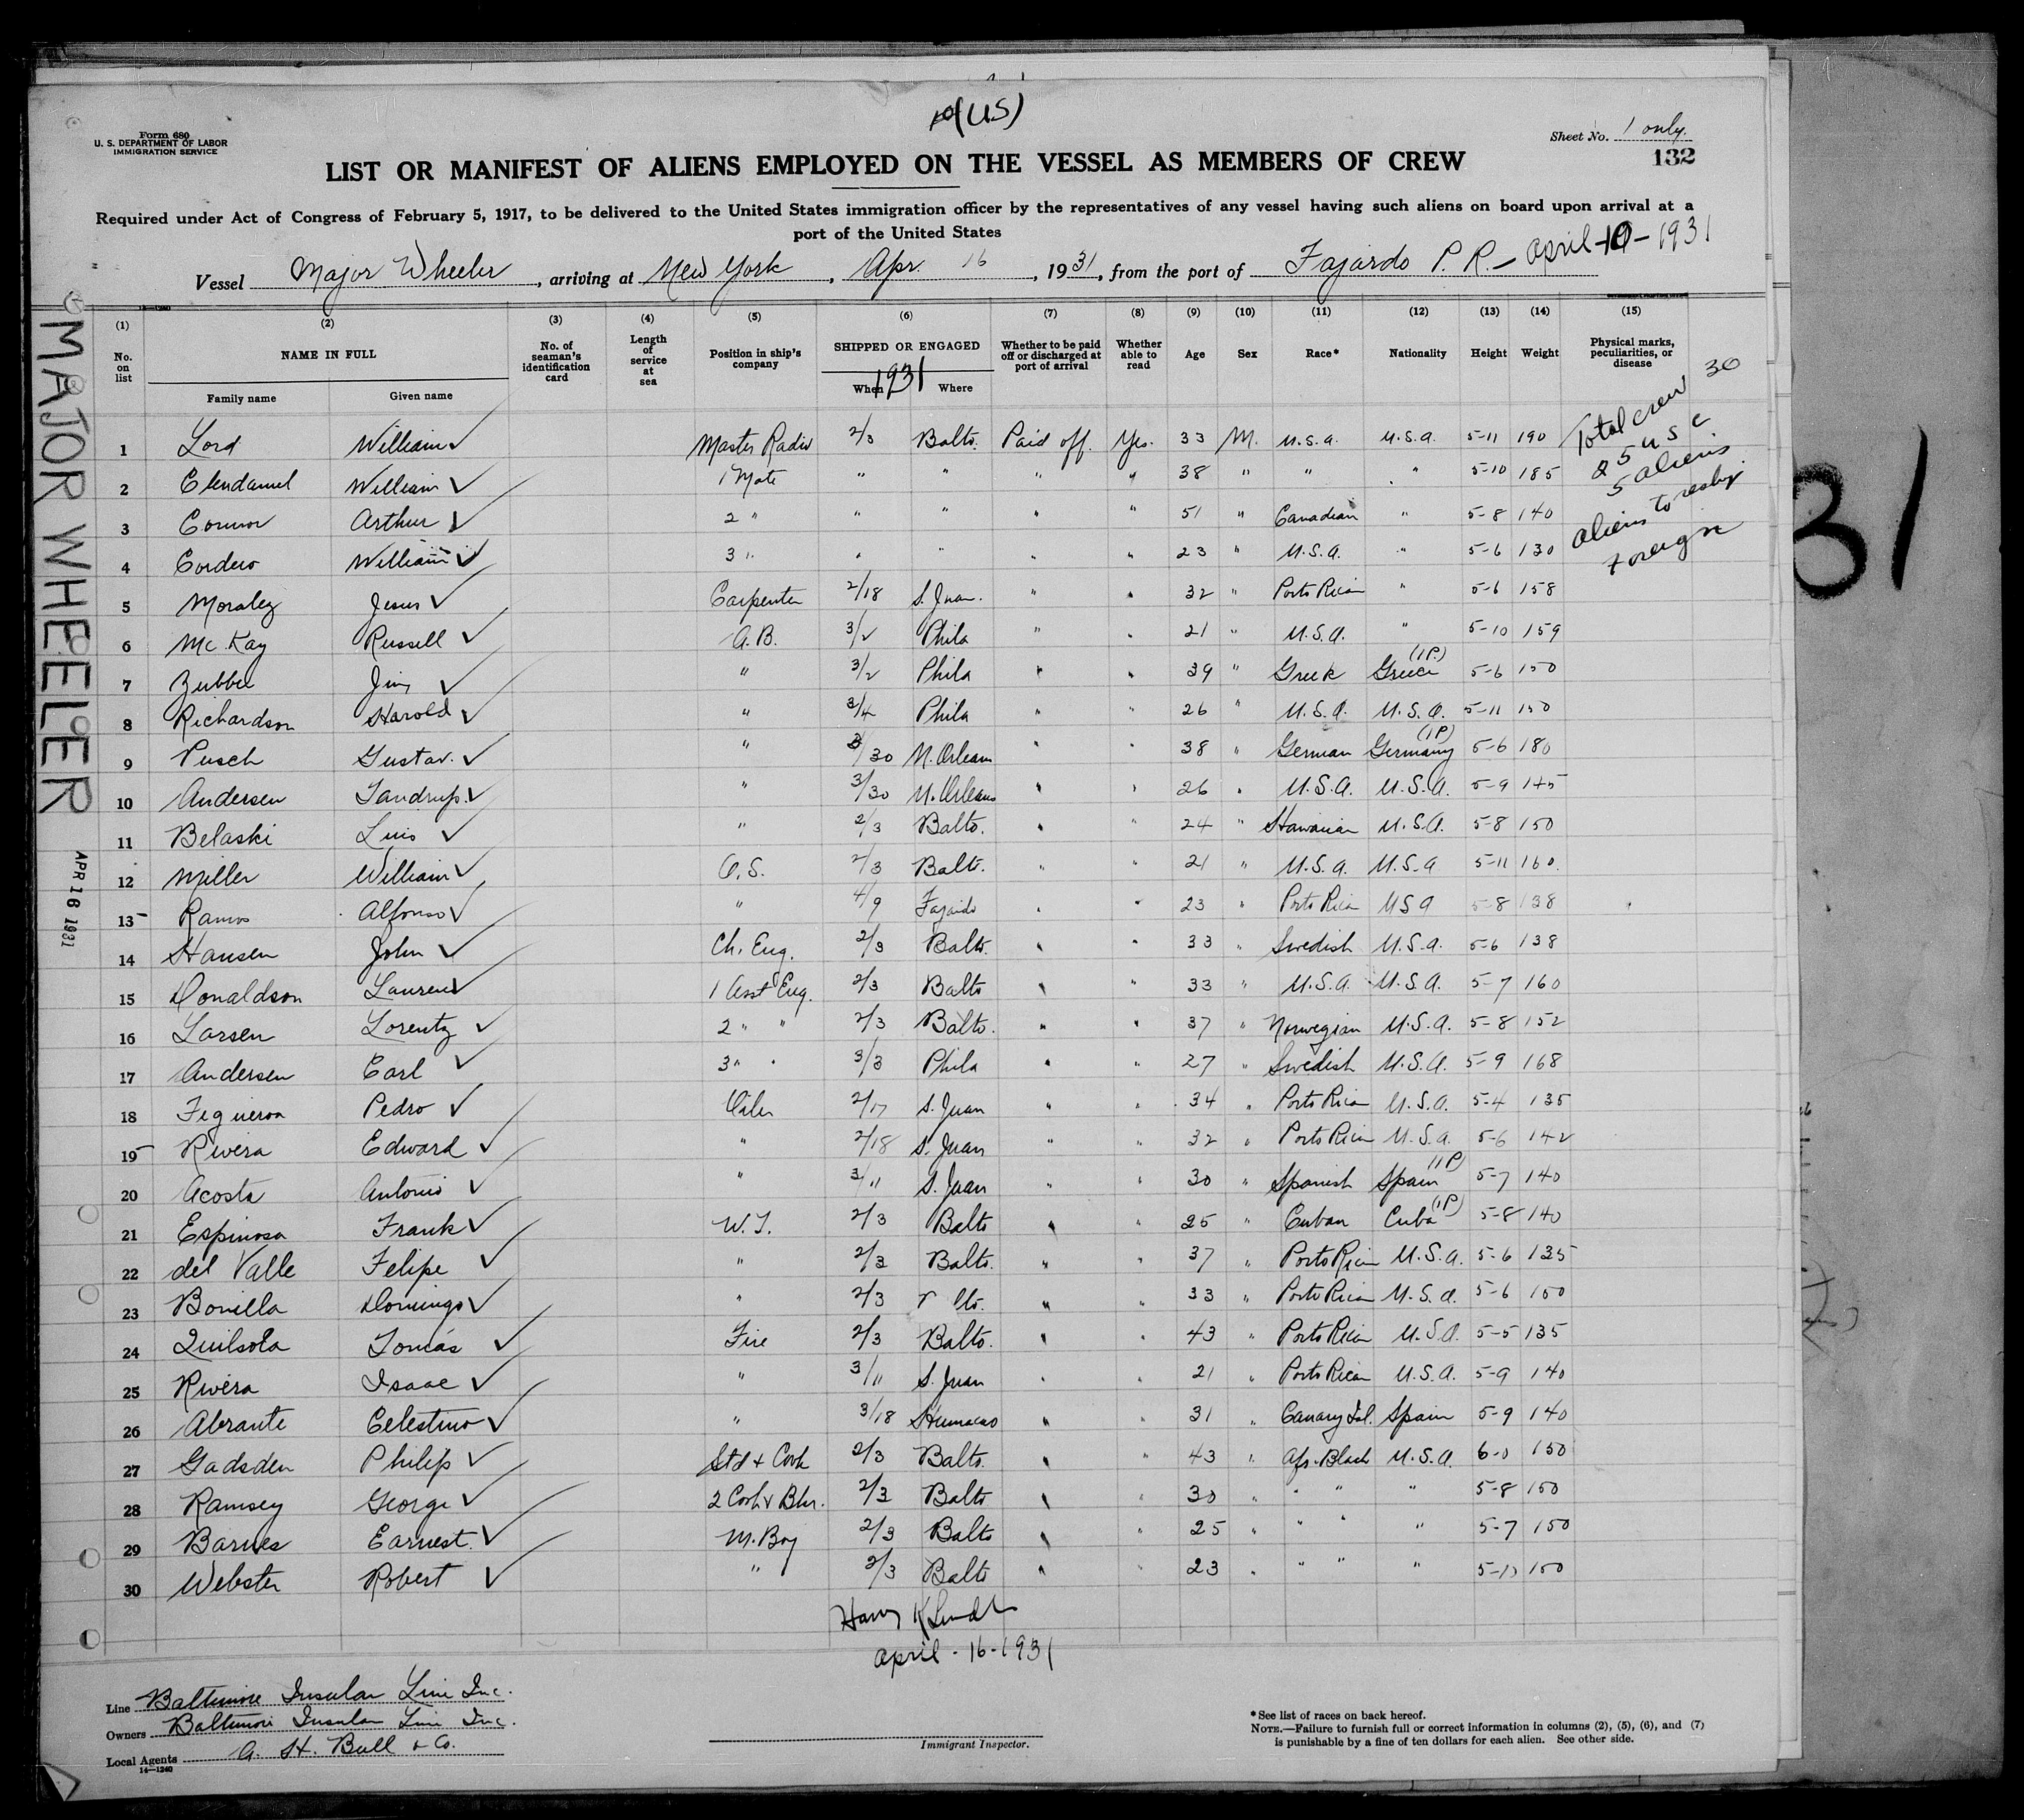 (U.S)
Form 680
U. S. DEPARTMENT OF LABOR
IMMIGRATION SERVICE
Sheet No. 1 only.
132
LIST OR MANIFEST OF ALIENS EMPLOYED ON THE VESSEL AS MEMBERS OF CREW
Required under Act of Congress of February 5, 1917, to be delivered to the United States immigration officer by the representatives of any vessel having such aliens on board upon arrival at a
port of the United States
Vessel Major Wheeler, arriving at New York, Apr. 16, 1931, from the port of Fajardo P. R. – April-10-1931
(1) (2) (3) (4) (5) (6) (7) (8) (9) (10) (11) (12) (13) (14) (15)
No. on list NAME IN FULL Family name Given name No. of seaman's identification card Length of service at sea Position in ship's company SHIPPED OR ENGAGED When 1931 Where Whether to be paid off or discharged at port of arrival Whether able to read Age Sex Race* Nationality Height Weight Physical marks, peculiarities, or disease
Total crew 30
25 USC
5 aliens
aliens to reship
foreign
1 Lord William ✓ Master Radio 2/3 Balto. Paid off. Yes. 33 M. U.S.A. U.S.A. 5-11 190
2 William ✓ 1 Mate " " " " 38 " " " 5-10 185
3 Connor Arthur ✓ 2 " " " " " 51 " Canadian " 5-8 140
4 Cordero William ✓ 3 " " " " " 23 " U.S.A. " 5-6 130
5 Moraley Jesus ✓ Carpenter 2/18 S. Juan. " " 32 " Porto Rican " 5-6 158
6 McKay Russell ✓ A.B. 3/2 Phila " " 21 " U.S.A. " 5-10 159
7 Zubbe Jim ✓ " 3/2 Phila " " 39 " Greek Greece (1P.) 5-6 150
8 Richardson Harold ✓ " 3/4 Phila " " 26 " U.S.A. U.S.A. 5-11 150
9 Pusch Gustav. ✓ " 3/30 N. Orleans " " 38 " German Germany (1P) 5-6 180
10 Andersen Tandrup. ✓ " 3/30 N. Orleans " " 26 " U.S.A. U.S.A. 5-9 145
11 Belaski Luis ✓ " 2/3 Balto. " " 24 " Hawaiian U.S.A. 5-8 150
12 Miller William ✓ O.S. 2/3 Balto. " " 21 " U.S.A. U.S.A 5-11 160.
13 Ramos Alfonso ✓ " 4/9 Fajardo " " 23 " Porto Rican USA 5-8 138
14 Hansen John ✓ Ch. Eng. 2/3 Balto. " " 33 " Swedish U.S.A. 5-6 138
15 Donaldson Laurent ✓ 1 Asst Eng. 2/3 Balto " " 33 " U.S.A. U.S.A. 5-7 160
16 Larsen Lorentz ✓ 2 " " 2/3 Balto. " " 37 " Norwegian U.S.A. 5-8 152
17 Andersen Earl ✓ 3 " " 3/3 Phila " " 27 " Swedish U.S.A. 5-9 168
18 Figueroa Pedro ✓ Oiler 2/17 S. Juan " " 34 " Porto Rican U.S.A. 5-4 135
19 Rivera Edward ✓ " 2/18 S. Juan " " 32 " Porto Rican U.S.A. 5-6 142
20 Acosta Antonio ✓ " 3/11 S. Juan " " 30 " Spanish Spain (1P) 5-7 140
21 Espinosa Frank ✓ W.T. 2/3 Balto " " 25 " Cuban Cuba (1P) 5-8 140
22 del Valle Felipe ✓ " 2/3 Balto. " " 37 " Porto Rican U.S.A. 5-6 135
23 Bonilla Domingo ✓ " 2/3 lto. " " 33 " Porto Rican U.S.A. 5-6 150
24 Quilsola Tomás ✓ Fire 2/3 Balto. " " 43 " Porto Rican U.S.A. 5-5 135
25 Rivera Isaac ✓ " 3/11 S. Juan " " 21 " Porto Rican U.S.A. 5-9 140
26 Abrante Celestino ✓ " 3/18 Humacao " " 31 " Canary Isl. Spain 5-9 140
27 Gadsden Philip ✓ Std + Cook 2/3 Balto. " " 43 " Afr. Black U.S.A. 6-0 150
28 Ramsey George ✓ 2 Cook & Bkr. 2/3 Balto " " 30 " " " " 5-8 150
29 Barnes Earnest. ✓ M. Boy 2/3 Balto " " 25 " " " " 5-7 150
30 Webster Robert ✓ " 2/3 Balto " " 23 " " " " 150
Harry K
April-16-1931
Line Baltimore Insular Line Inc.
Owners Baltimore Insular Line Inc.
Local Agents A. H. Bull & Co.
14—1240
Immigrant Inspector.
* See list of races on back hereof.
NOTE.—Failure to furnish full or correct information in columns (2), (5), (6), and (7)
is punishable by a fine of ten dollars for each alien. See other side.
MAJOR WHEELER
APR 16 1931
31